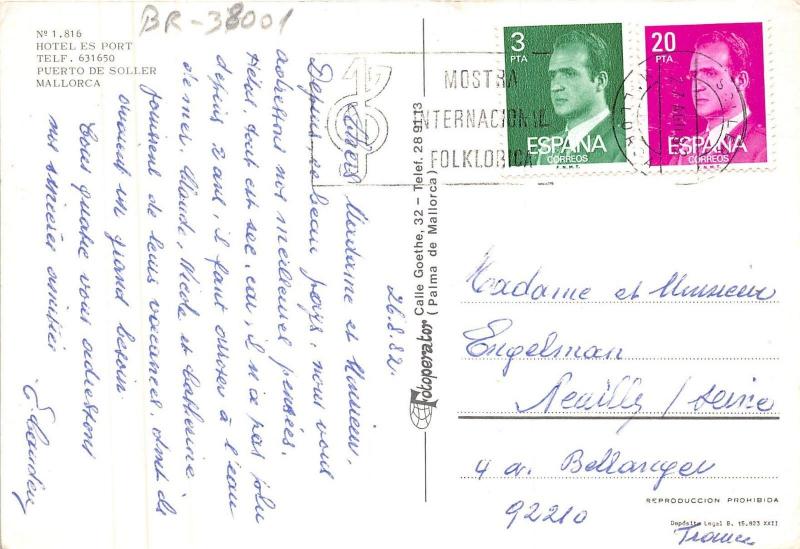 BR-38001
Nº 1.816
HOTEL ES PORT
TELF. 631650
PUERTO DE SOLLER
MALLORCA
3
PTA
ESPAÑA
CORREOS
F.N.M.T.
20
PTA
ESPAÑA
CORREOS
F.N.M.T.
MOSTRA
INTERNACIONAL
FOLKLORICA
26.8.82.
Madame et Monsieur,
Depuis ce beau pays, nous vous
adressons nos meilleures pensées.
Hélas, tout est sec, car, il n'a pas plu
depuis 2 ans, il faut à l'eau
de mer. Claude, Nicole et Catherine
jouissent de leurs vacances, dont ils
avaient un grand besoin
Tous quatre vous adressons
nos sincères amitiés
Fotoperator Calle Goethe, 32 - Telef. 28 91 13
(Palma de Mallorca)
Madame et Monsieur
Engelman
Neuilly / Seine
4 av. Bellanger
92210
France
REPRODUCCION PROHIBIDA
Depósito Legal B. 15.823 XXII